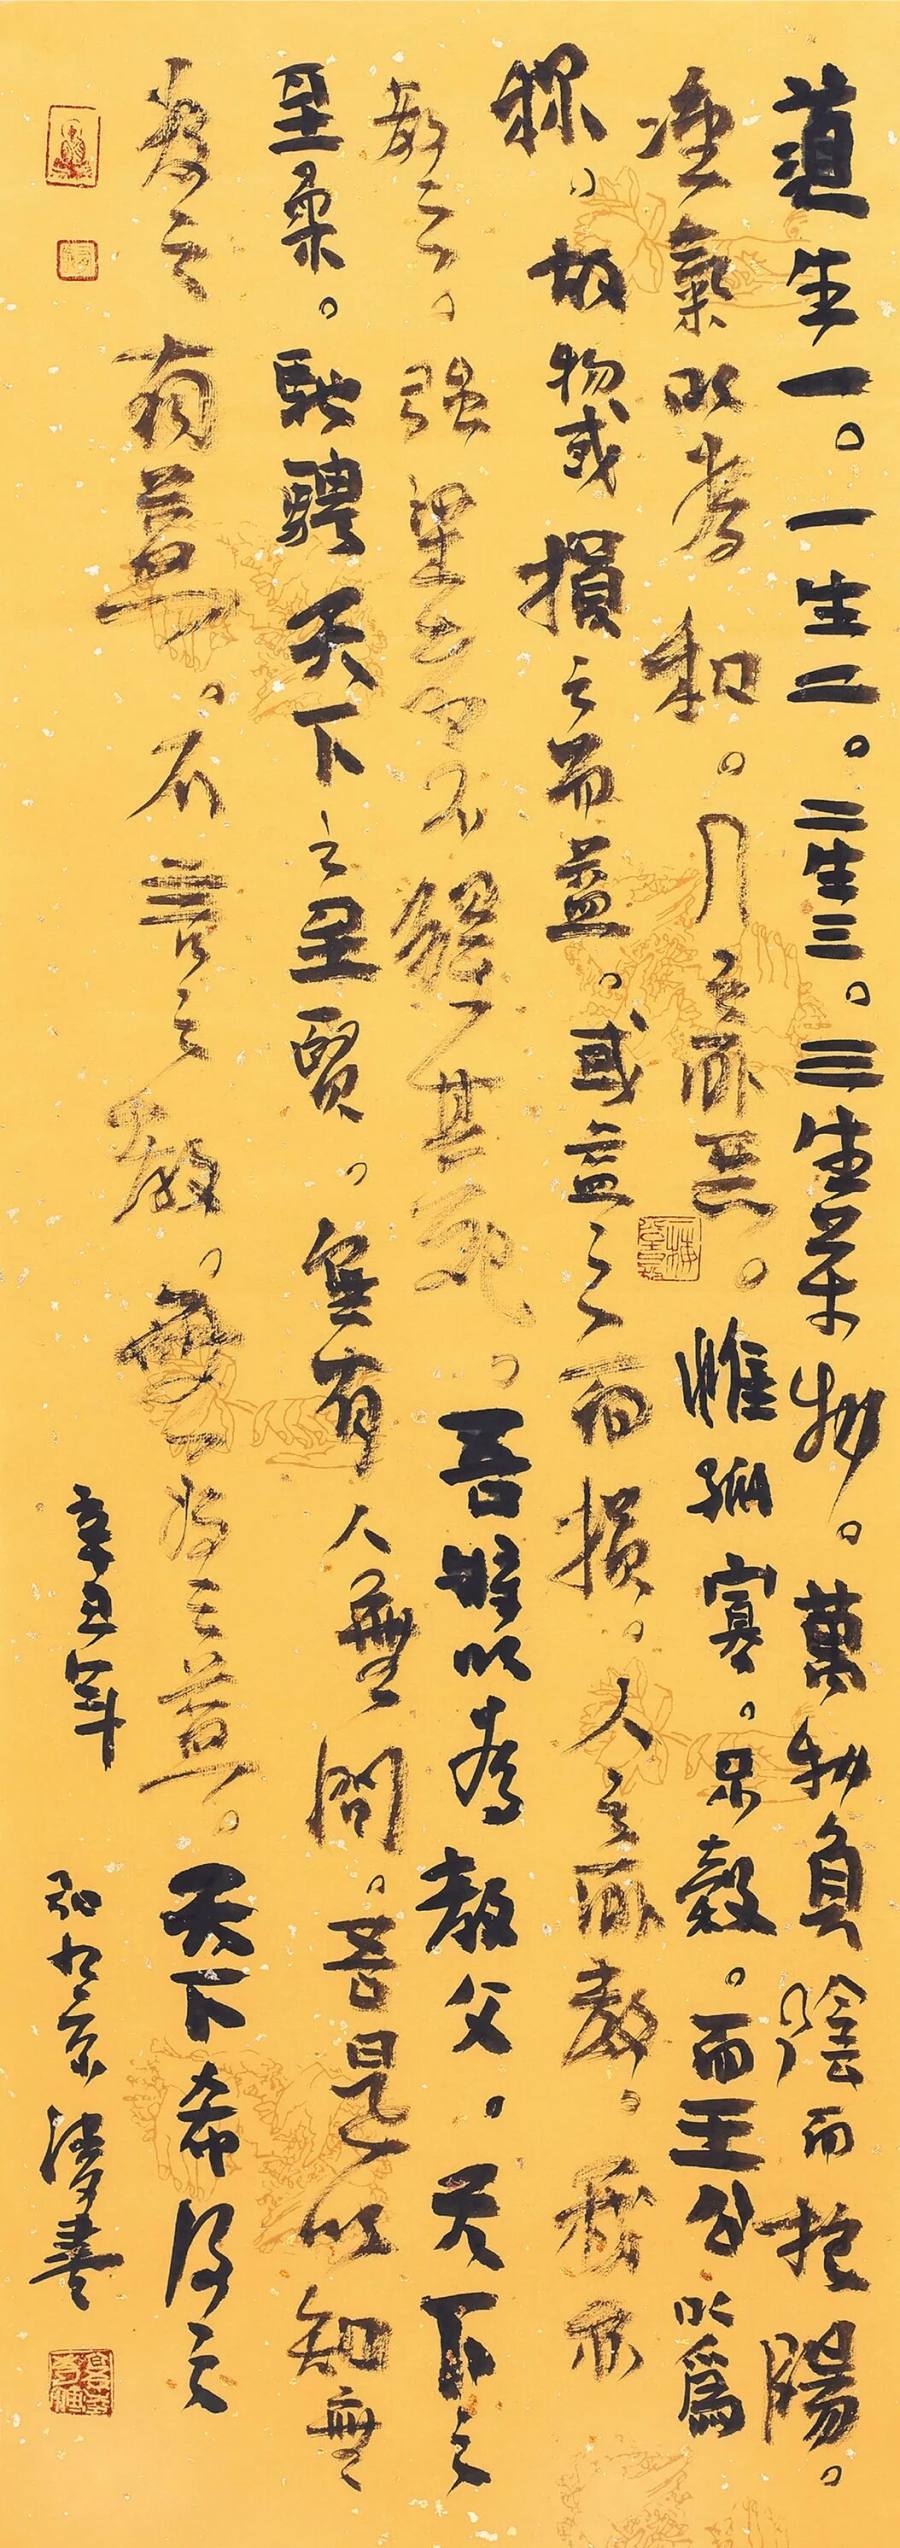 道生一。一生二。二生三。三生万物。萬物負陰而抱陽。
沖氣以為和。人之所惡。惟孤寡。不穀。而王公以為
称。故物或損之而益。或益之而损。人之所教。我亦
教之。强梁者不得其死。吾将以為教父。天下之
至柔。馳騁天下之至堅。無有入無間。吾是以知無
為之有益。不言之教。無為之益。天下希及之
辛丑年 書